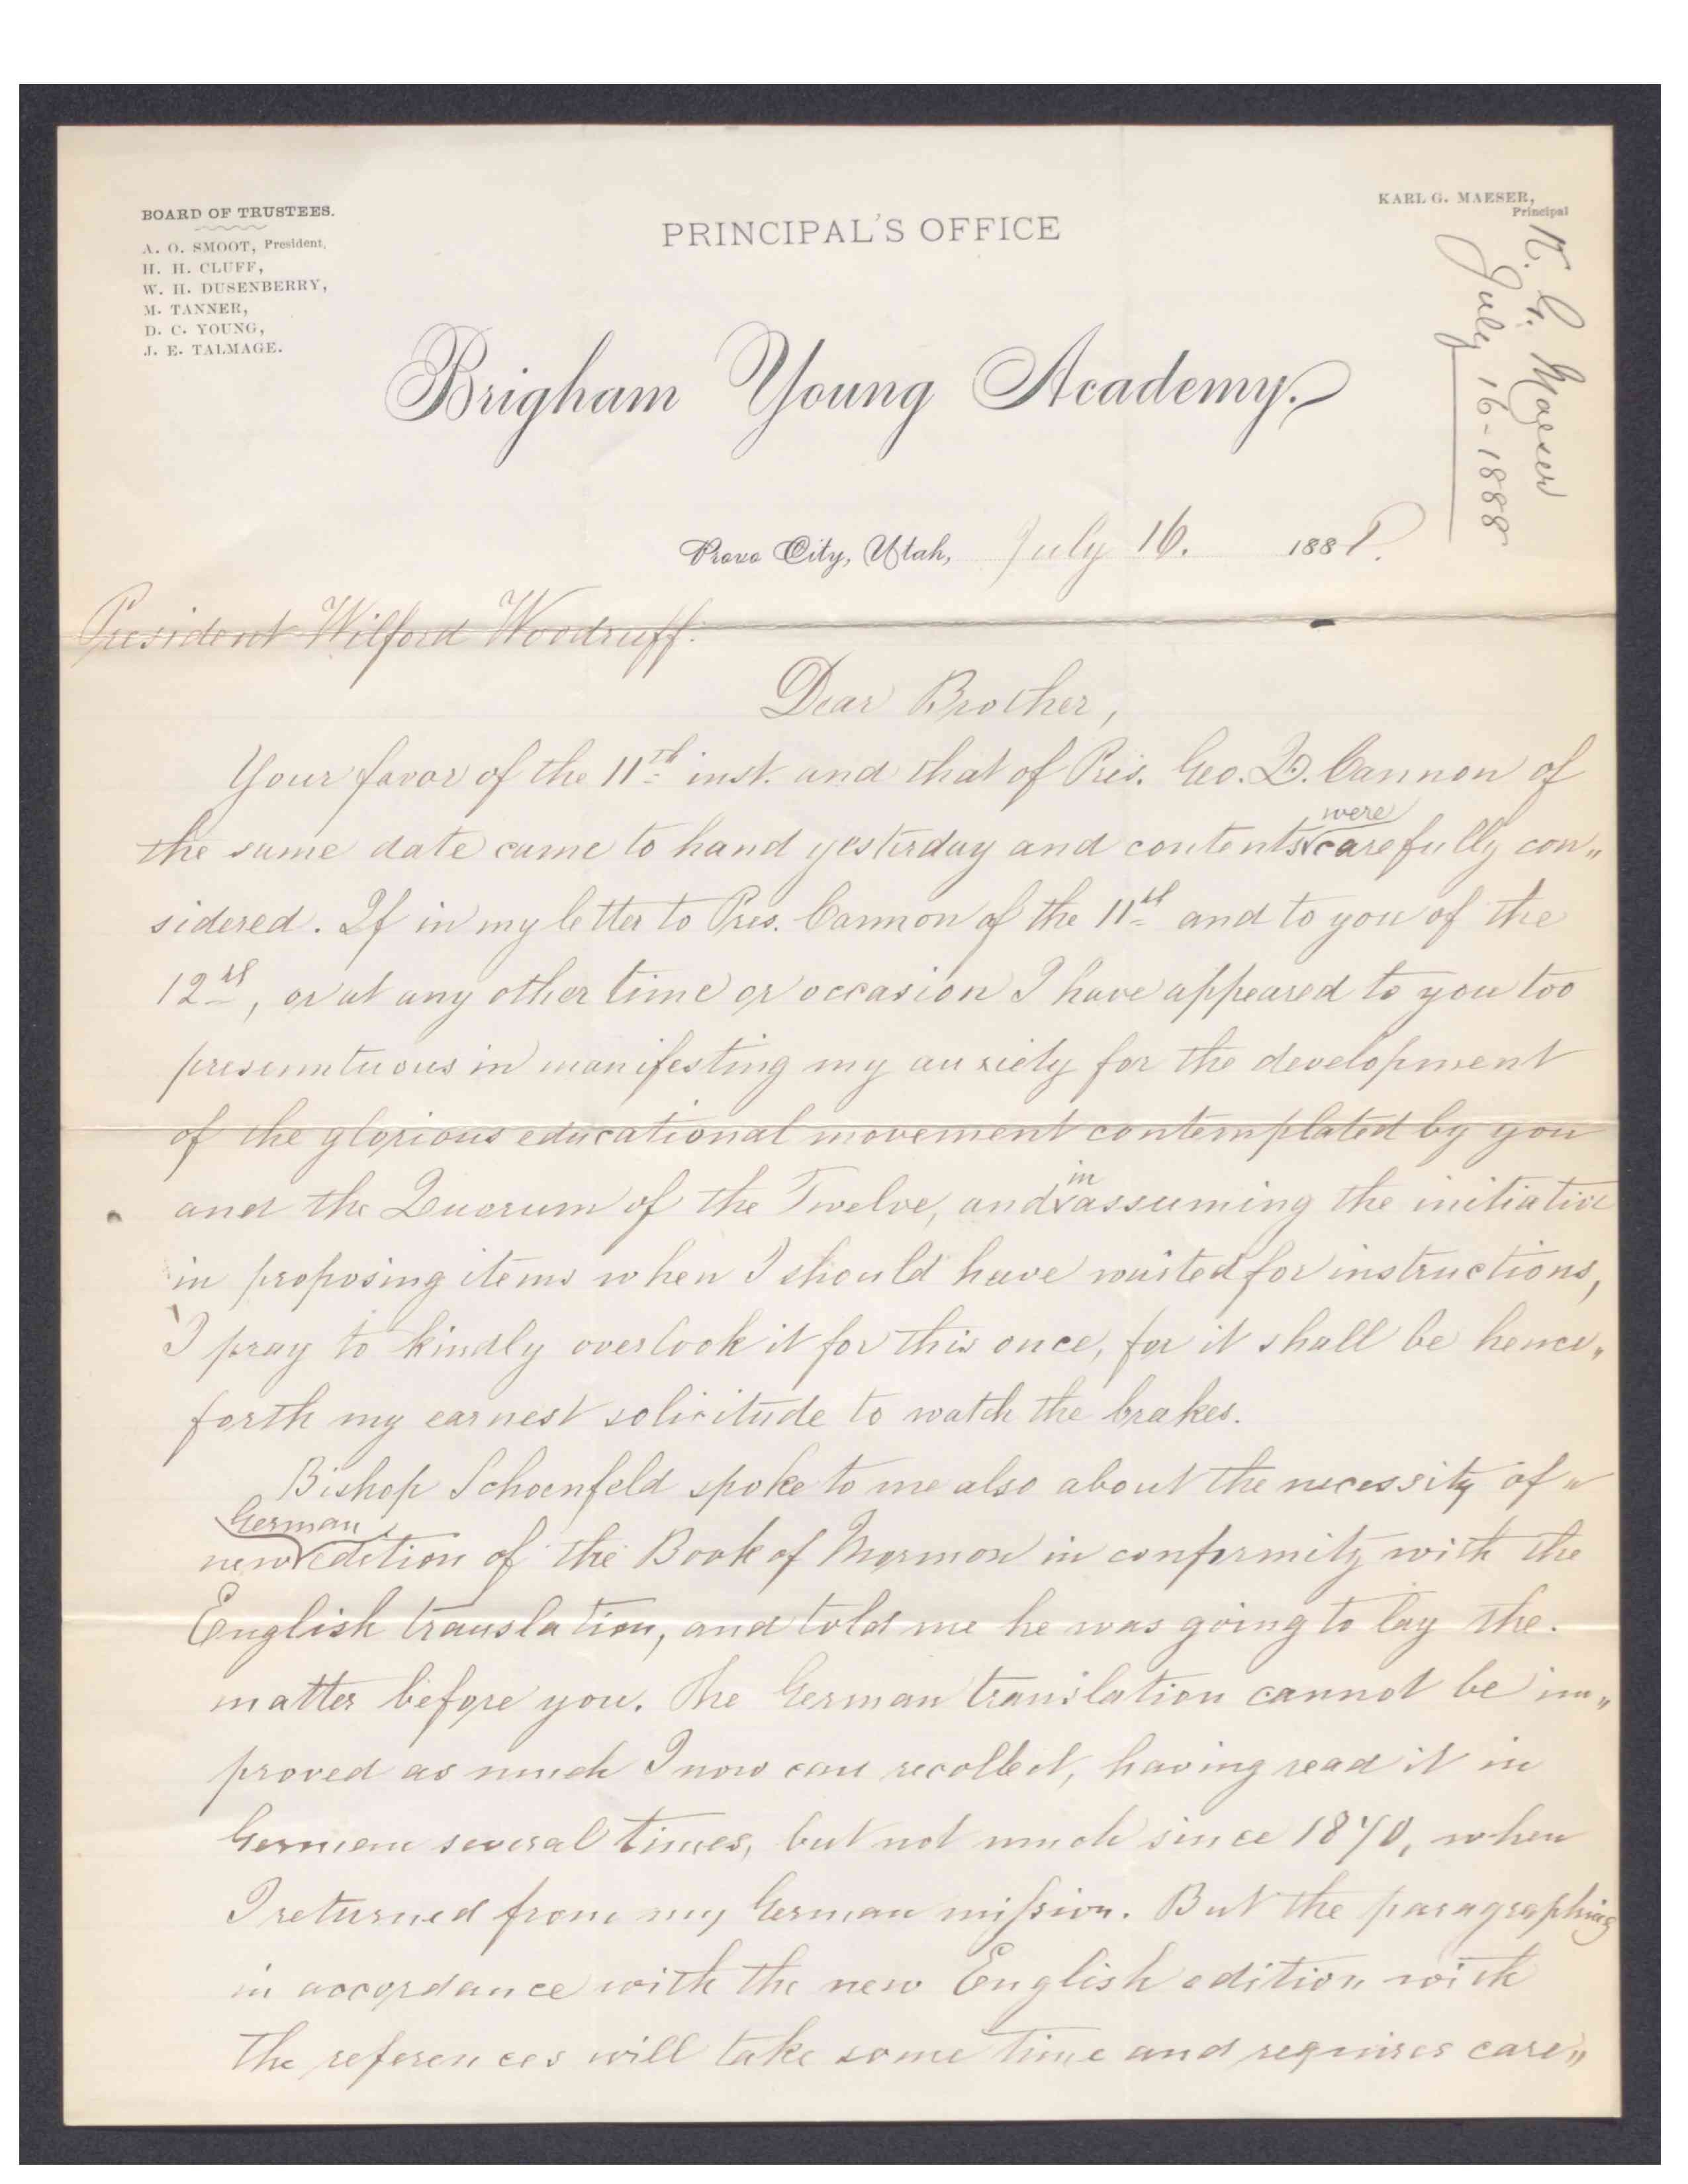 BOARD OF TRUSTEES.
A. O. SMOOT, President,
H. H. CLUFF,
W. H. DUSENBERRY,
M. TANNER,
D. C. YOUNG,
J. E. TALMAGE.
PRINCIPAL'S OFFICE
KARL G. MAESER,
Principal
K. G. Maeser
July 16-1888
Brigham Young Academy.
Provo City, Utah, July 16. 1888.
President Wilford Woodruff.
Dear Brother,
Your favor of the 11th inst. and that of Pres. Geo. Q. Cannon of
the same date came to hand yesterday and contents were carefully con„
sidered. If in my letter to Pres. Cannon of the 11th and to you of the
12th, or at any other time or occasion I have appeared to you too
presumtuous in manifesting my anxiety for the development
of the glorious educational movement contemplated by you
and the Quorum of the Twelve, and in assuming the initiative
in proposing items when I should have waited for instructions,
I pray to kindly overlook it for this once, for it shall be hence„
forth my earnest solicitude to watch the brakes.
Bishop Schoenfeld spoke to me also about the necessity of a
new German edition of the Book of Mormon in conformity with the
English translation, and told me he was going to lay the
matter before you. The German translation cannot be im„
proved as much I now can recollect, having read it in
German several times, but not much since 1870, when
I returned from my German mission. But the paragraphing
in accordance with the new English edition with
the references will take some time and requires care„